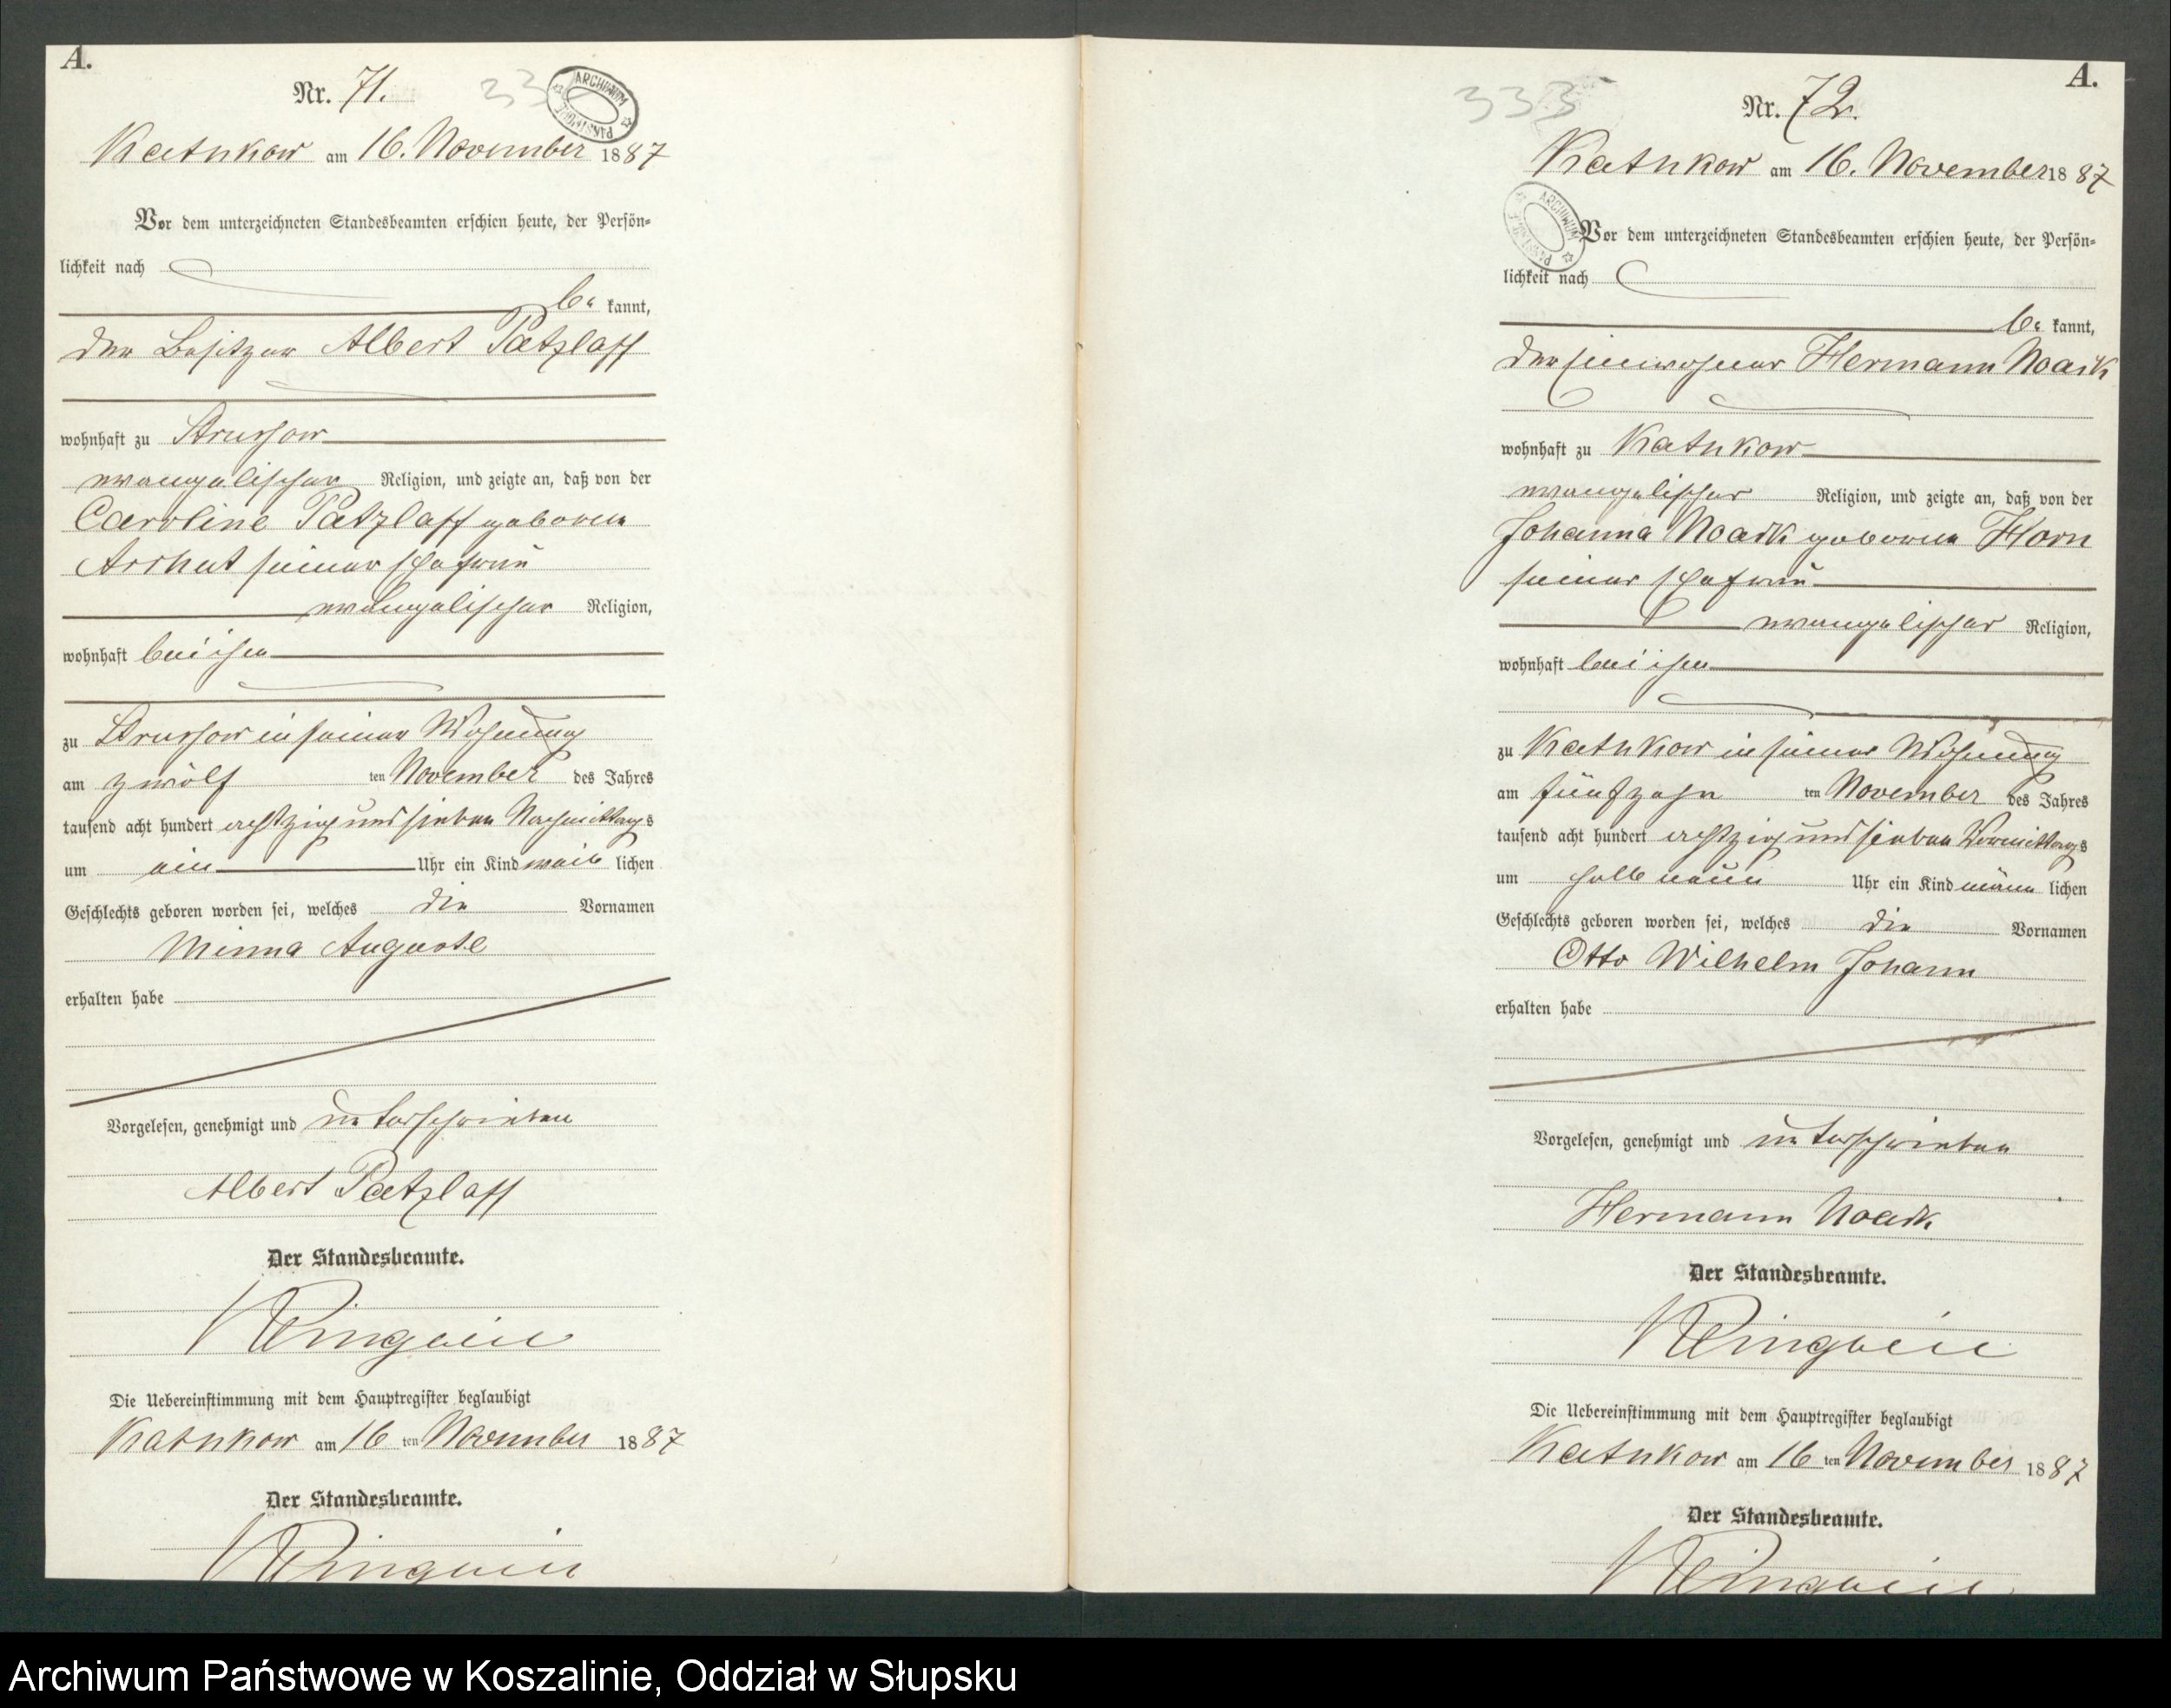 A.
Nr. 71.
ARCHIWUM PAŃSTWOWE
Katnkow am 16. November 1887
Vor dem unterzeichneten Standesbeamten erschien heute, der Persön-
lichkeit nach
be kannt,
der Besitzer Albert Patzlaff
wohnhaft zu Strussow
evangelischer Religion, und zeigte an, daß von der
Caroline Patzlaff geborene
seiner Ehefrau
evangelischer Religion,
wohnhaft bei ihm
zu Strussow in seiner Wohnung
am zwölf ten November des Jahres
tausend acht hundert achtzig und sieben Nachmittags
um ein Uhr ein Kind weib lichen
Geschlechts geboren worden sei, welches die Vornamen
Minna Auguste
erhalten habe
Vorgelesen, genehmigt und unterschrieben
Albert Patzlaff
Der Standesbeamte.
Die Uebereinstimmung mit dem Hauptregister beglaubigt
Katnkow am 16 ten November 1887
Der Standesbeamte.
A.
333
Nr. 72.
Katnkow am 16. November 1887
ARCHIWUM PAŃSTWOWE
Vor dem unterzeichneten Standesbeamten erschien heute, der Persön-
lichkeit nach
be kannt,
der Einwohner Hermann Noack
wohnhaft zu Katnkow
evangelischer Religion, und zeigte an, daß von der
Johanna Noack geborene Horn
seiner Ehefrau
evangelischer Religion,
wohnhaft bei ihm
zu Katnkow in seiner Wohnung
am fünfzehn ten November des Jahres
tausend acht hundert achtzig und sieben Vormittags
um halb neun Uhr ein Kind männ lichen
Geschlechts geboren worden sei, welches die Vornamen
Otto Wilhelm Johann
erhalten habe
Vorgelesen, genehmigt und unterschrieben
Hermann Noack
Der Standesbeamte.
Die Uebereinstimmung mit dem Hauptregister beglaubigt
Katnkow am 16 ten November 1887
Der Standesbeamte.
Archiwum Państwowe w Koszalinie, Oddział w Słupsku